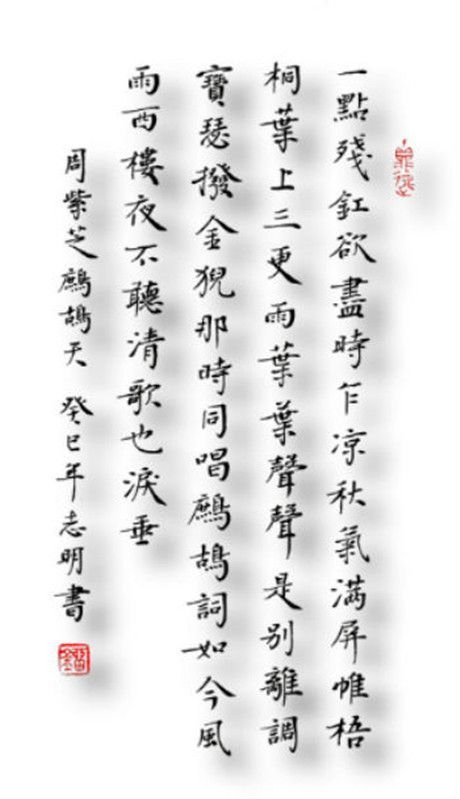 一點殘釭欲盡時乍凉秋氣满屏帷梧
桐葉上三更雨葉葉聲聲是别離調
寶瑟撥金猊那時同唱鷓鴣詞如今風
雨西樓夜不聽清歌也淚垂
周紫芝鷓鴣天 癸巳年志明書